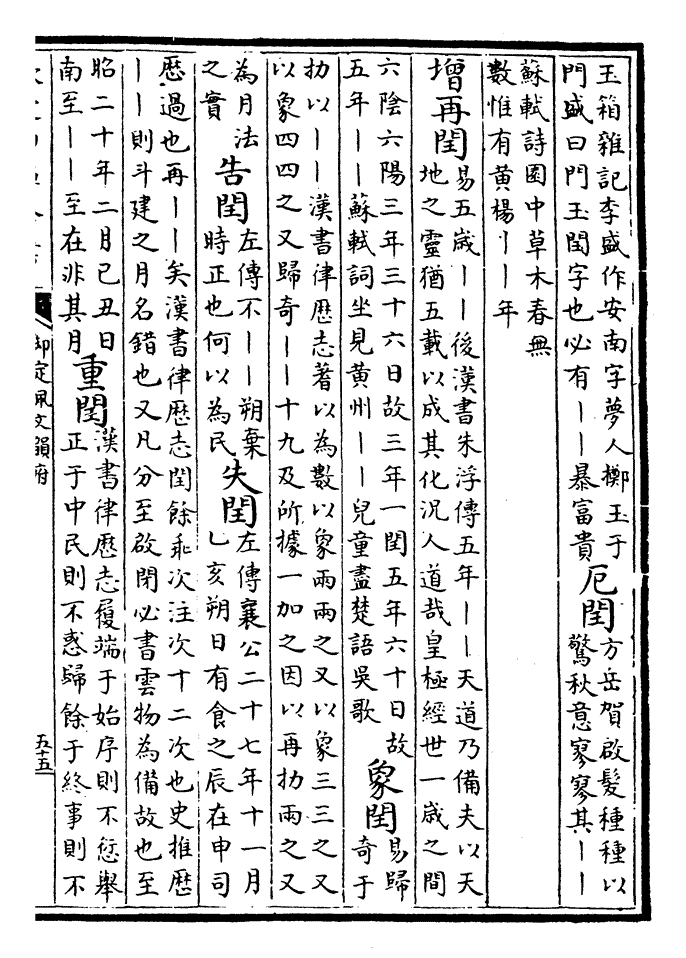 玉箱雜記李盛作安南字夢人擲玉于
門盛曰門玉閏字也必有丨丨暴富貴
厄閏
方岳賀啟髮種種以
驚秋意寥寥其丨丨
蘇軾詩園中草木春無
數惟有黄楊丨丨年
增再閏
易五歲丨丨後漢書朱浮傳五年丨丨天道乃備夫以天
地之靈猶五載以成其化況人道哉皇極經世一歲之閏
六陰六陽三年三十六日故三年一閏五年六十日故
五年丨丨蘇軾詞坐見黄州丨丨兒童盡楚語吳歌
象閏
易歸
奇于
扐以丨丨漢書律歷志著以為數以象兩兩之又以象三三之又
以象四四之又歸奇丨丨十九及所據一加之因以再扐兩之又
為月法
之實
告閏
左傳不丨丨朔棄
時正也何以為民
失閏
左傳襄公二十七年十一月
乙亥朔日有食之辰在申司
歷過也再丨丨矣漢書律歷志閏餘乖次注次十二次也史推歷
丨丨則斗建之月名錯也又凡分至啟閉必書雲物為備故也至
昭二十年二月己丑日
南至丨丨至在非其月
重閏
漢書律歷志履端于始序則不愆舉
正于中民則不惑歸餘于終事則不
御定佩文韻府
五十五